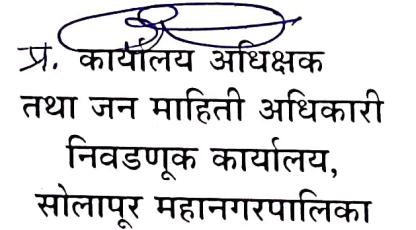 प्र. कार्यालय अधिक्षक
तथा जन माहिती अधिकारी
निवडणूक कार्यालय,
सोलापूर महानगरपालिका